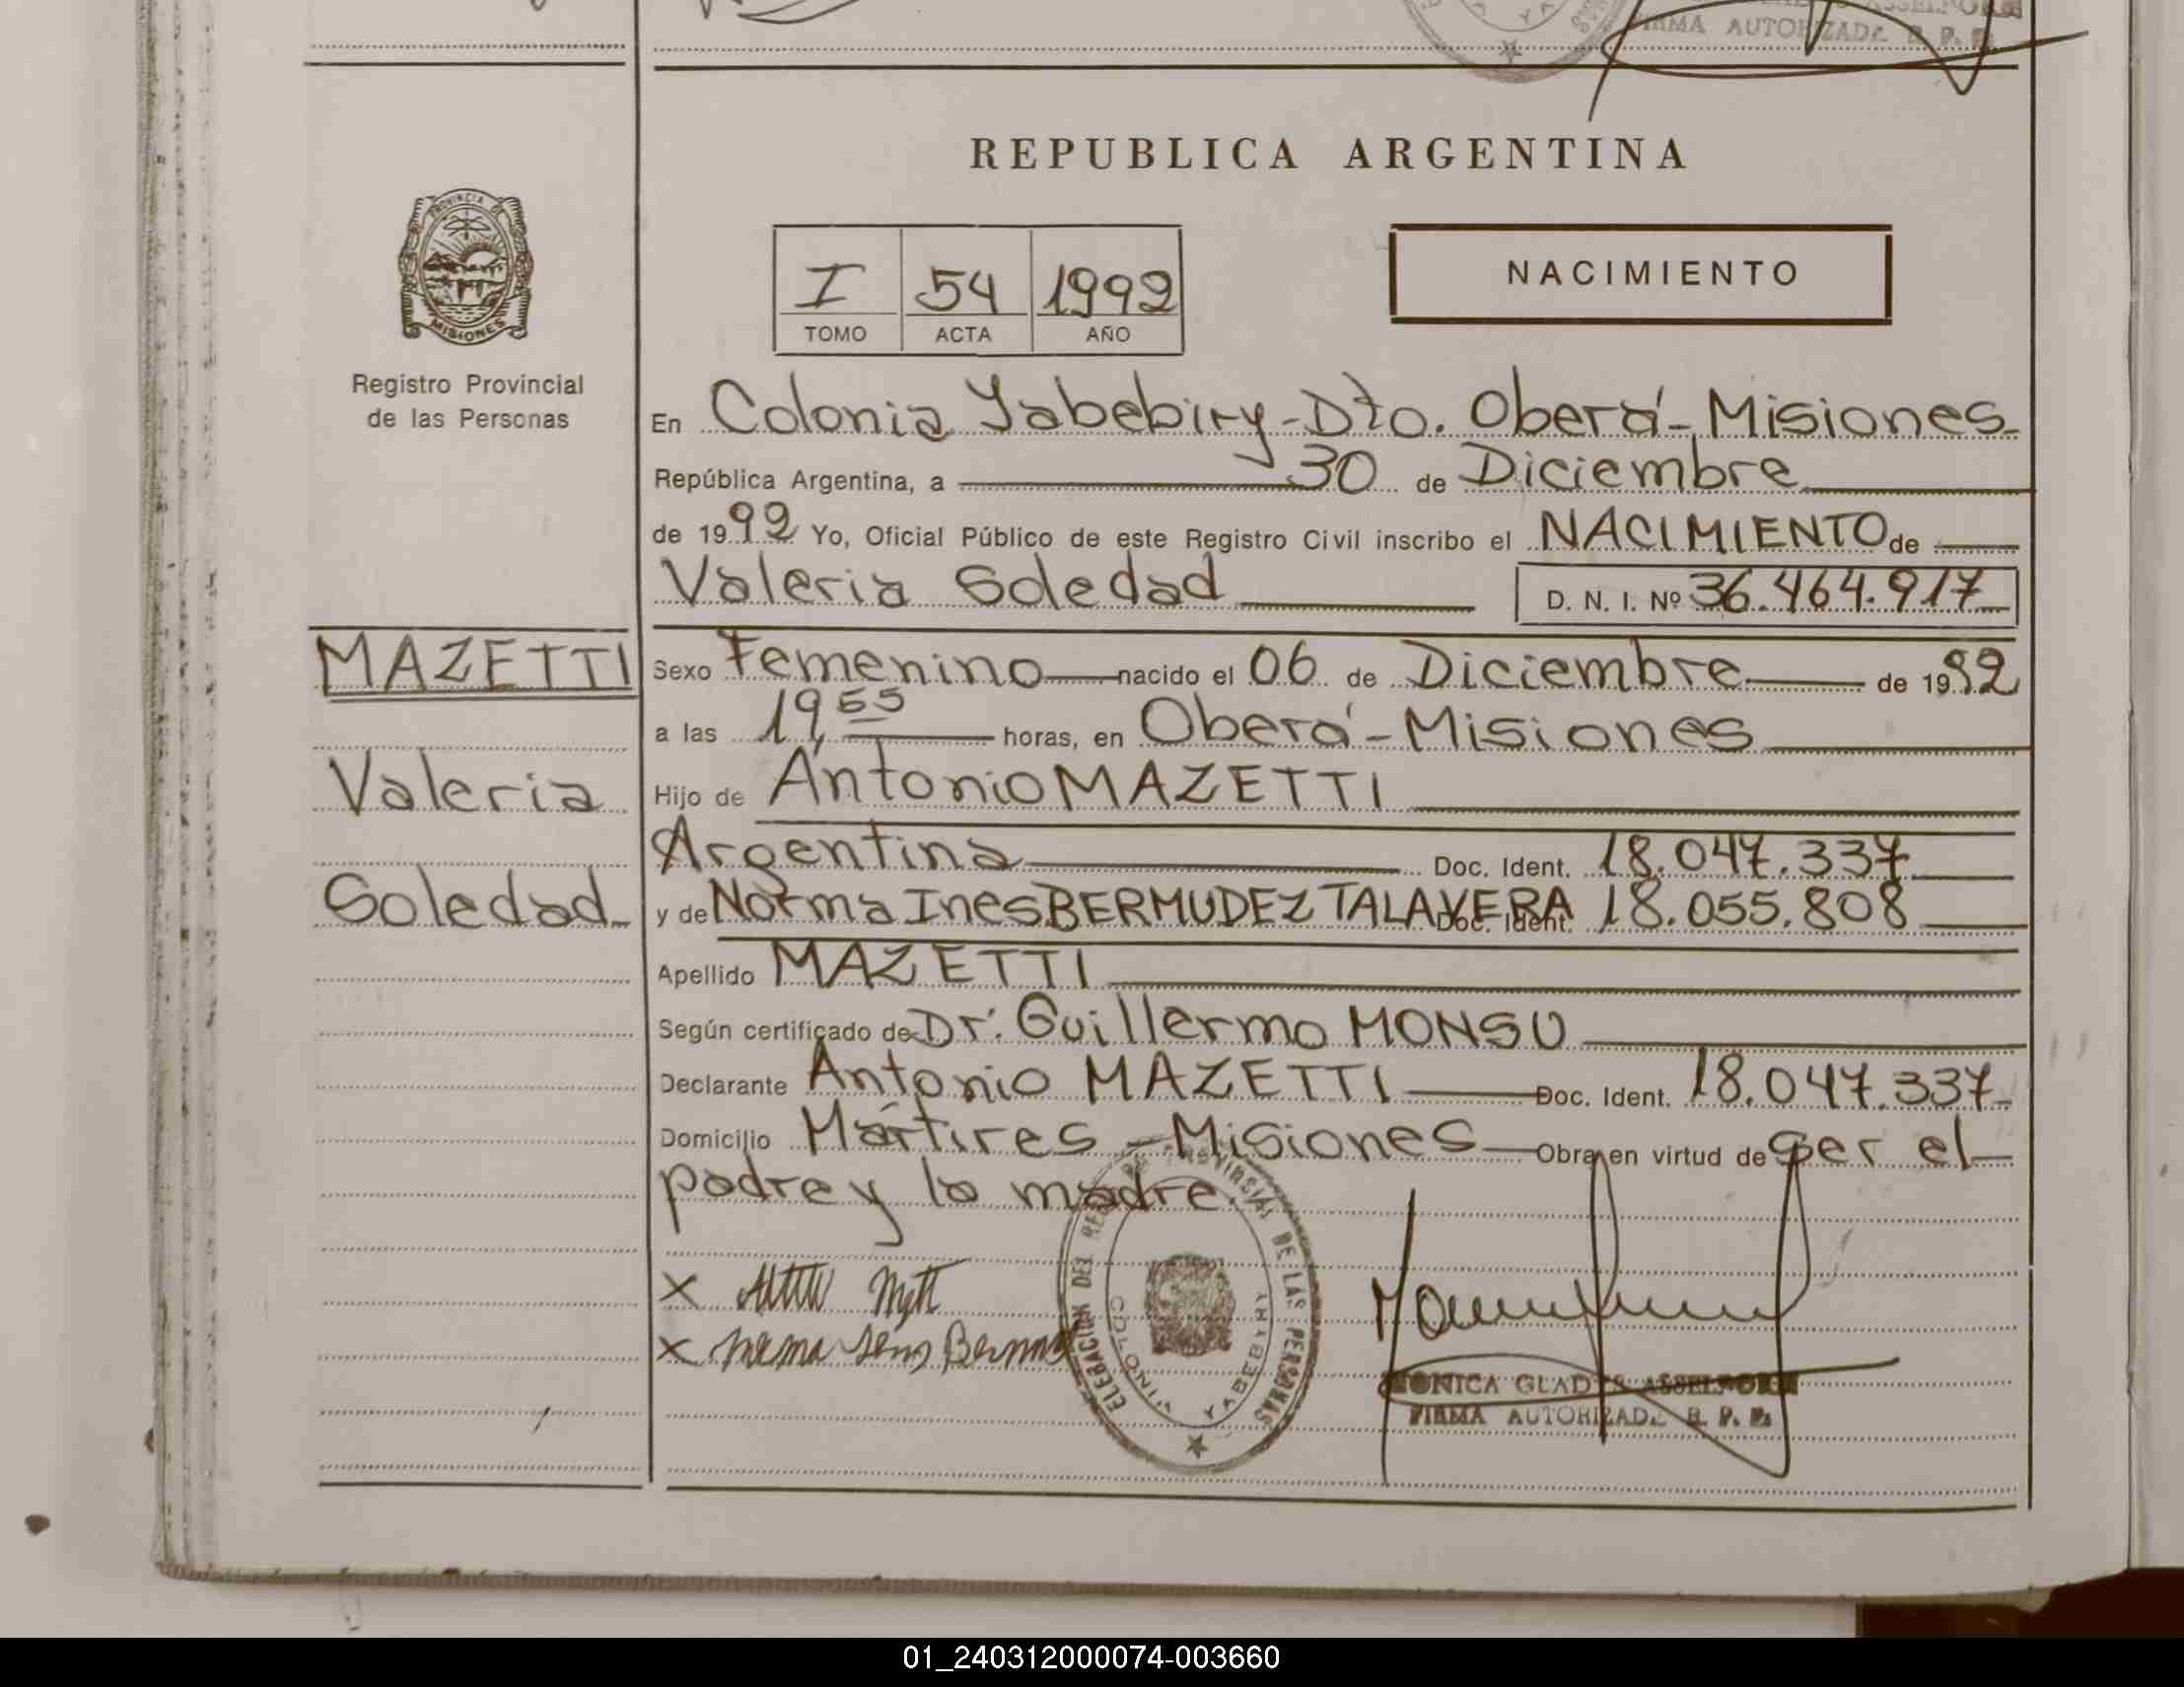 FIRMA AUTORIZADA R. P. P.
REPUBLICA ARGENTINA
PROVINCIA DE
MISIONES
Registro Provincial
de las Personas
I 54 1992
TOMO ACTA AÑO
NACIMIENTO
En Colonia Yabebiry-Dto. Oberá-Misiones
República Argentina, a 30 de Diciembre
de 1992 Yo, Oficial Público de este Registro Civil inscribo el NACIMIENTO de
Valeria Soledad D. N. I. Nº 36.464.917
MAZETTI
Valeria
Soledad
Sexo Femenino nacido el 06 de Diciembre de 1992
a las 19,55 horas, en Oberá-Misiones
Hijo de Antonio MAZETTI
Argentina Doc. Ident. 18.047.337
y de Norma Ines BERMUDEZ TALAVERA Doc. Ident. 18.055.808
Apellido MAZETTI
Según certificado de Dr. Guillermo MONSU
Declarante Antonio MAZETTI Doc. Ident. 18.047.337
Domicilio Mártires-Misiones Obra en virtud de ser el
padre y la madre.
X
X
DEL PROVINCIAL DE LAS PERSONAS
COLONIA YABEBIRY
MONICA GLADYS
FIRMA AUTORIZADA R. P. P.
01_240312000074-003660